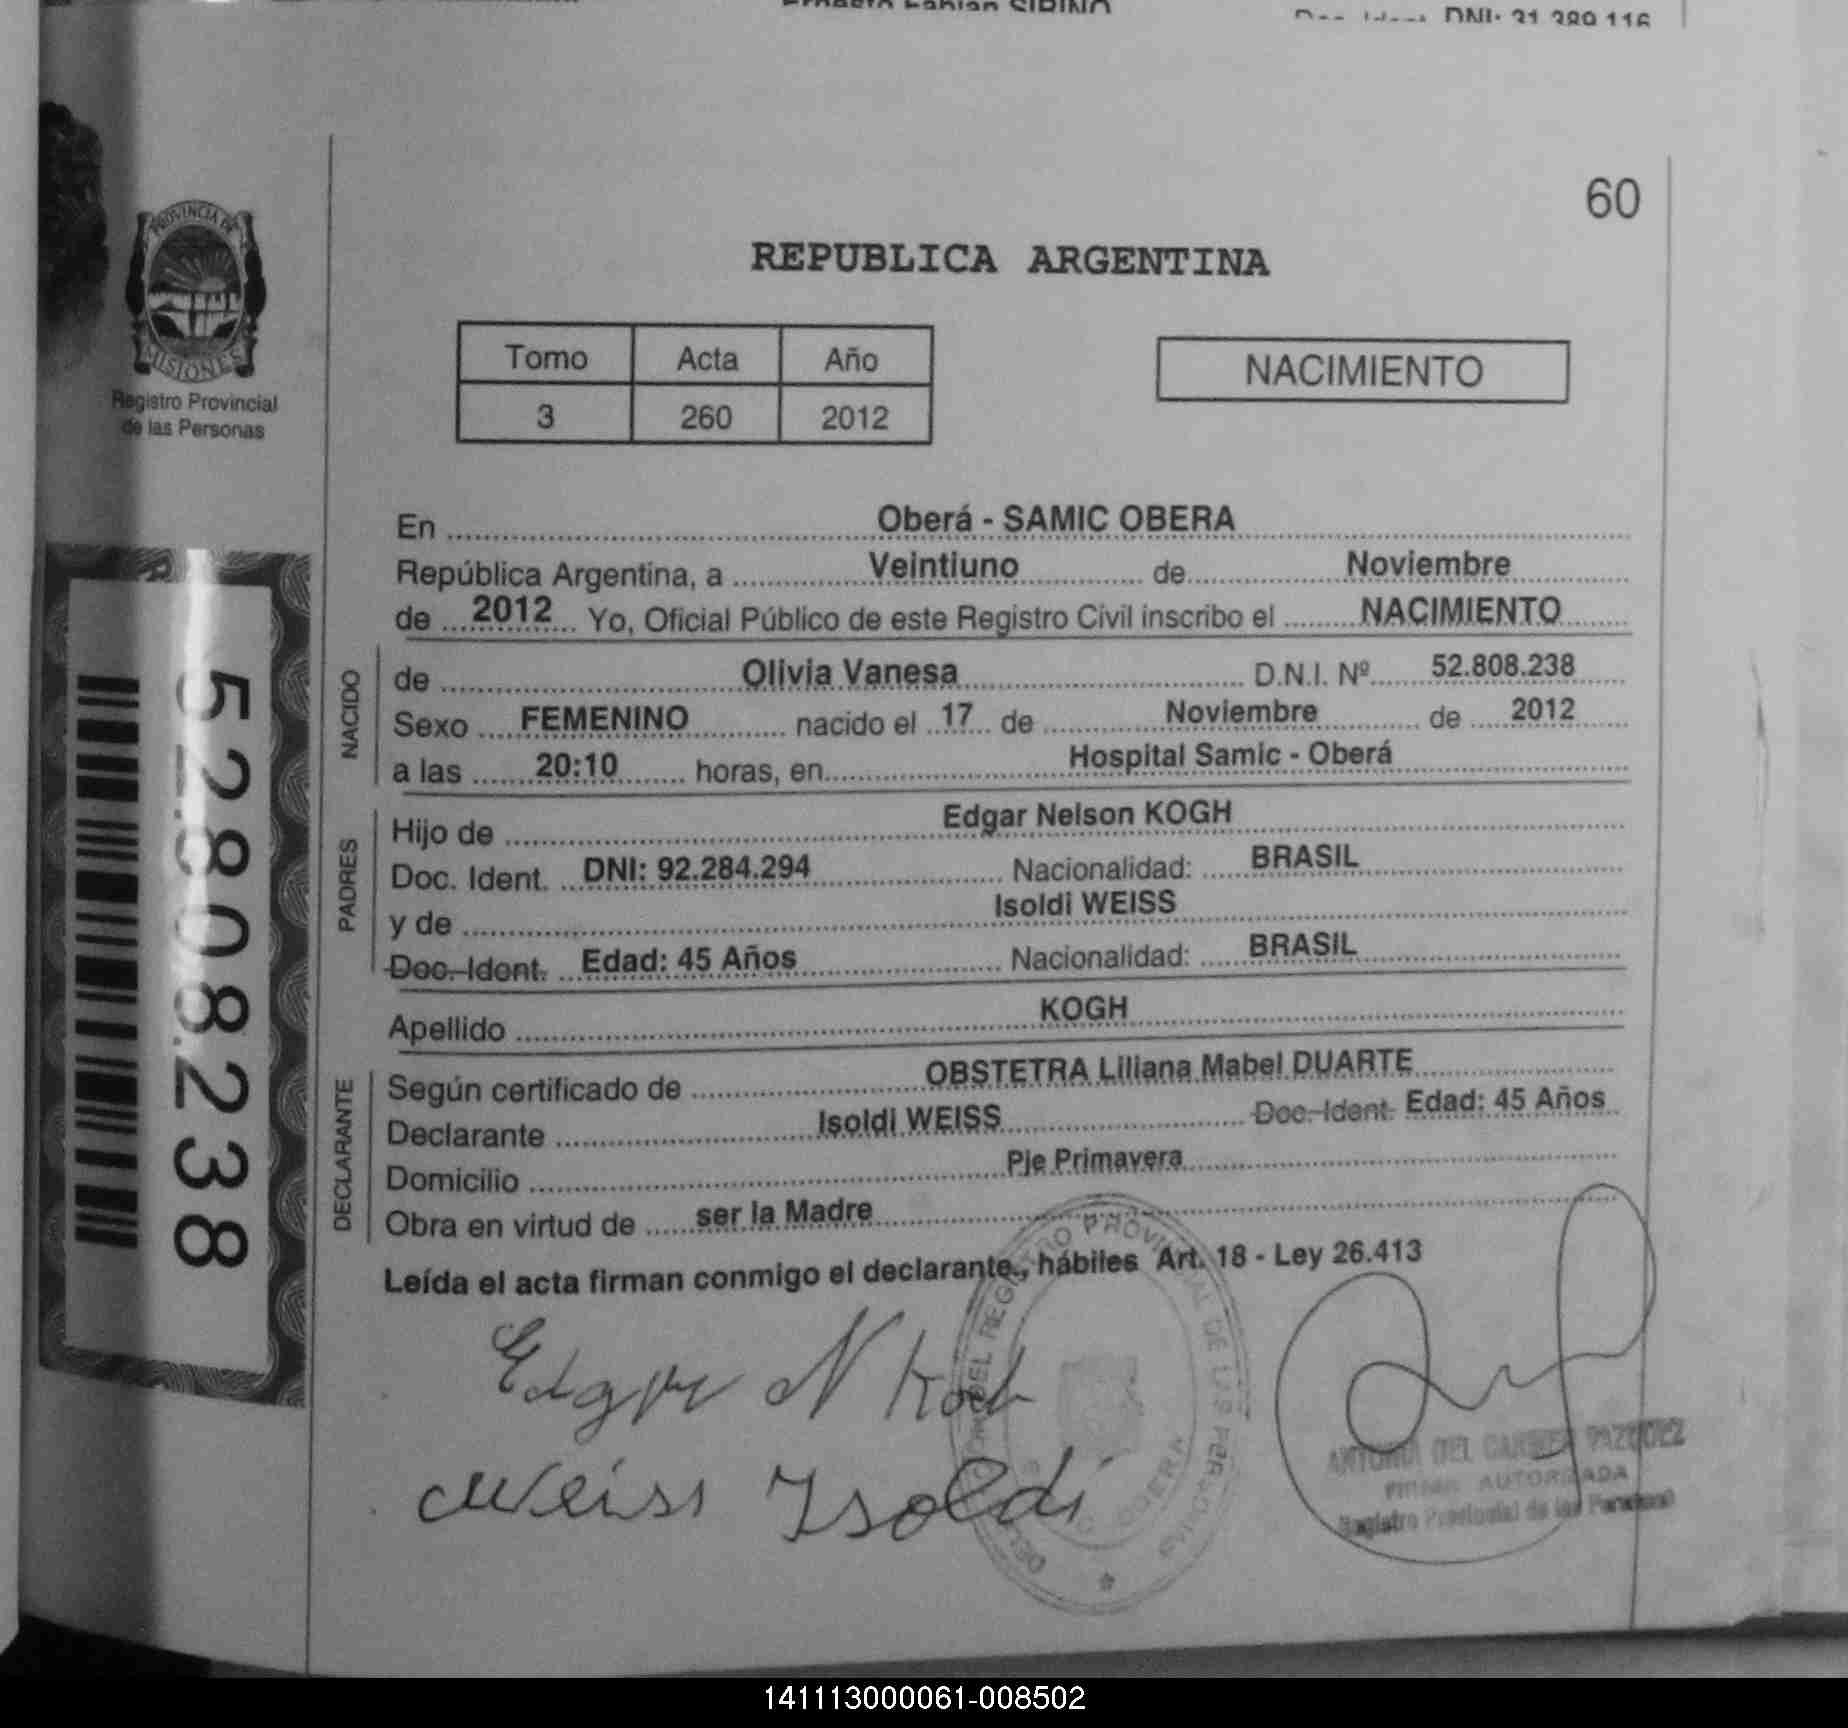 Ernesto Fabian SIRINO
Doc. Ident. DNI: 31.389.116
60
PROVINCIA DE
MISIONES
Registro Provincial
de las Personas
REPUBLICA ARGENTINA
Tomo Acta Año
3 260 2012
NACIMIENTO
En Oberá - SAMIC OBERA
República Argentina, a Veintiuno de Noviembre
de 2012 Yo, Oficial Público de este Registro Civil inscribo el NACIMIENTO
NACIDO
de Olivia Vanesa D.N.I. Nº 52.808.238
Sexo FEMENINO nacido el 17 de Noviembre de 2012
a las 20:10 horas, en Hospital Samic - Oberá
PADRES
Hijo de Edgar Nelson KOGH
Doc. Ident. DNI: 92.284.294 Nacionalidad: BRASIL
y de Isoldi WEISS
Doc. Ident. Edad: 45 Años Nacionalidad: BRASIL
Apellido KOGH
DECLARANTE
Según certificado de OBSTETRA Liliana Mabel DUARTE
Declarante Isoldi WEISS Doc. Ident. Edad: 45 Años
Domicilio Pje Primavera
Obra en virtud de ser la Madre
Leída el acta firman conmigo el declarante., hábiles Art. 18 - Ley 26.413
52.808.238
Edgar N Koch
Weiss Isoldi
DEL REGISTRO PROVINCIAL DE LAS PERSONAS
OBERA
ANTONIA DEL CARMEN VAZQUEZ
FIRMA AUTORIZADA
Registro Provincial de las Personas
141113000061-008502